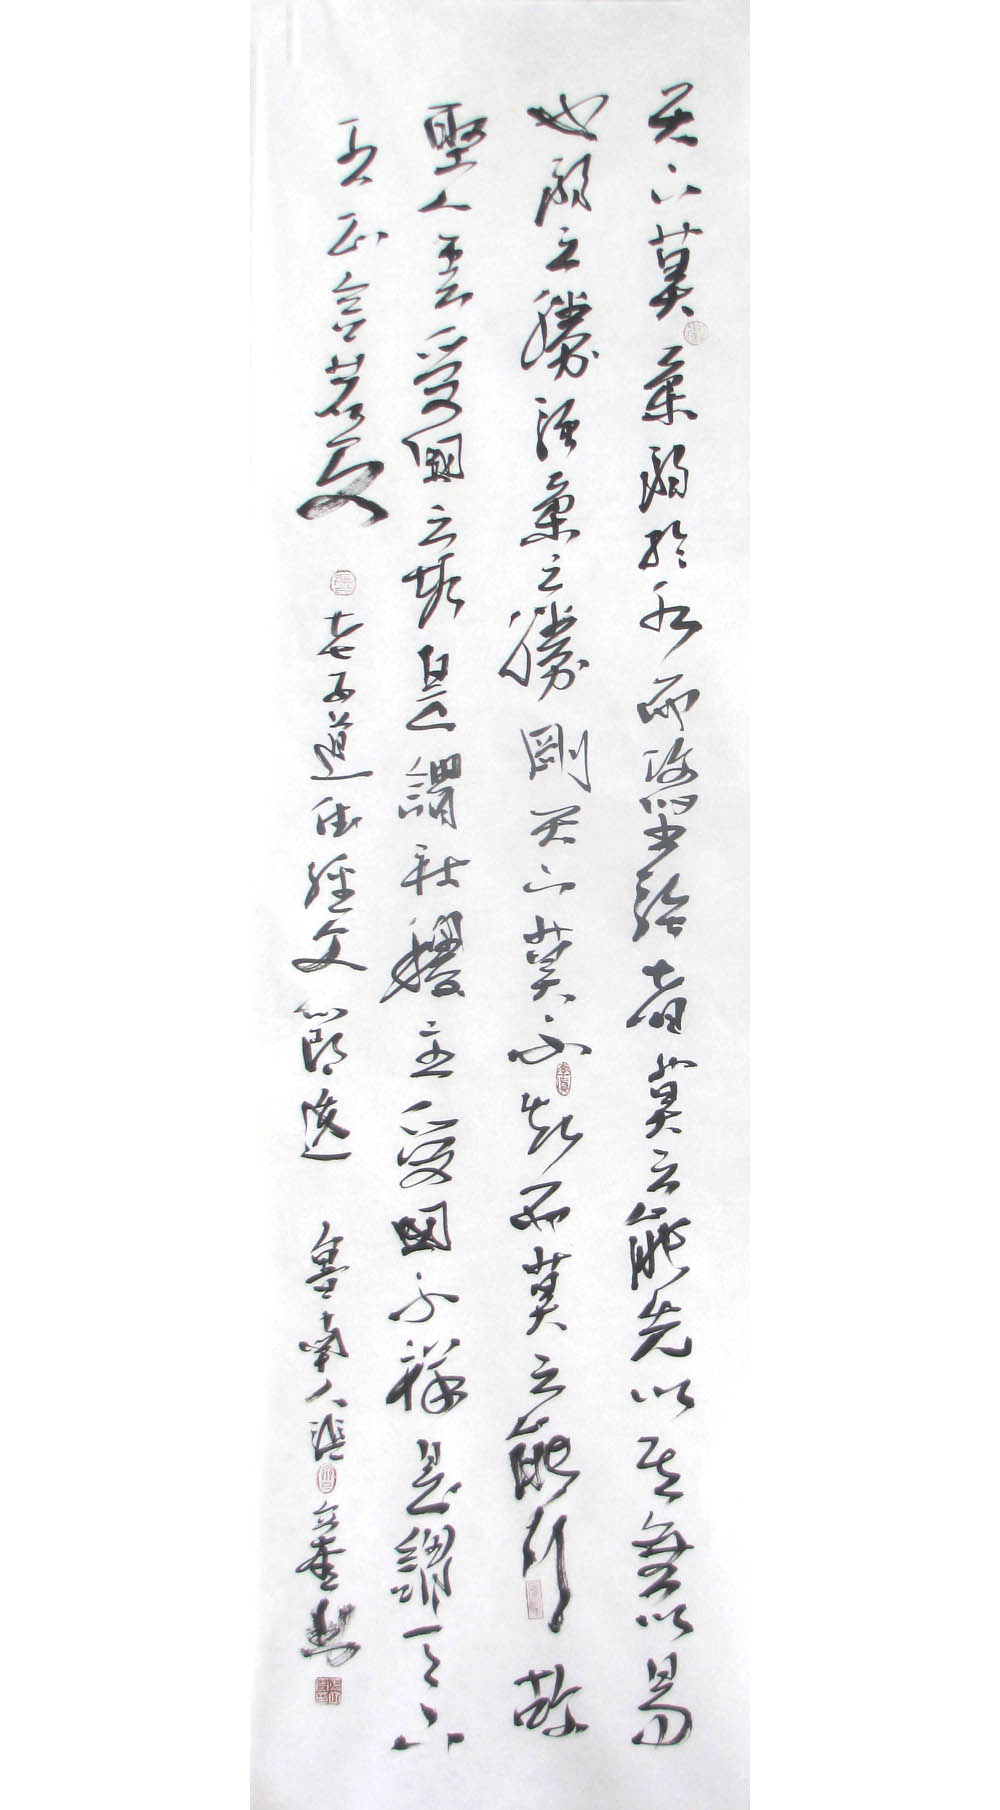 天下莫柔弱於水而攻堅強者莫之能先以其無以易
也弱之勝強柔之勝剛天下莫不知而莫之能行故
聖人云受國之垢是謂社稷主受國不祥是謂天下
王正言若反
老子道德經文節選
魯南人